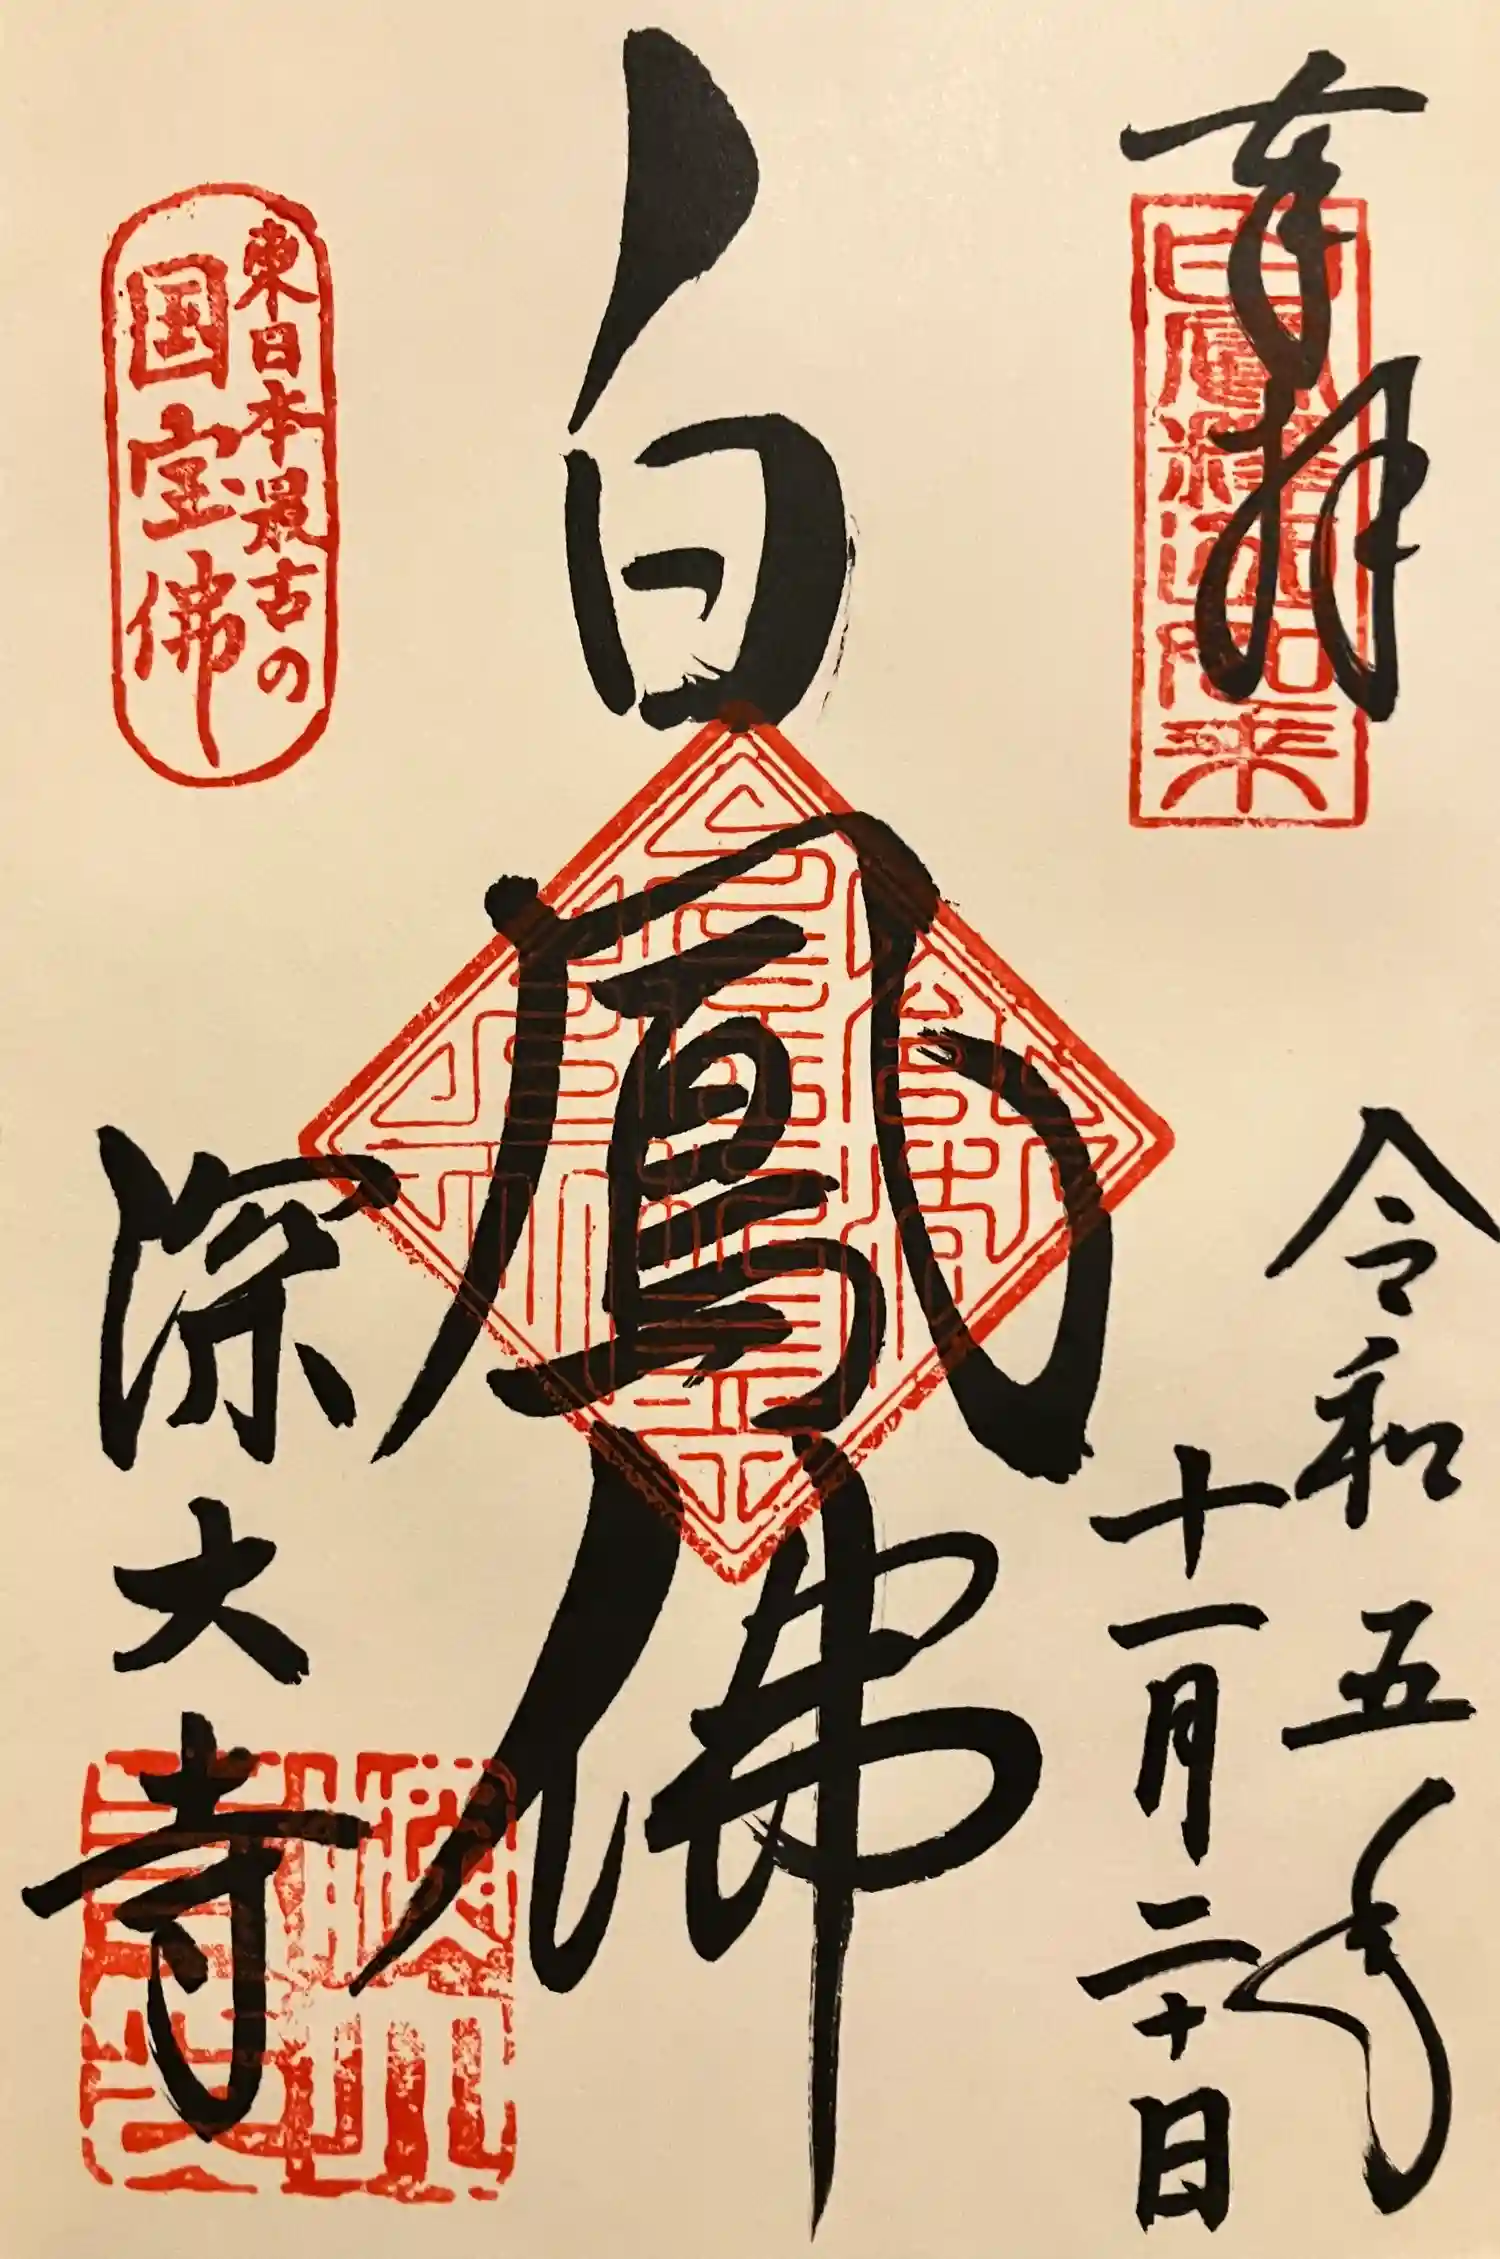 奉拝
白鳳釋迦如来
令和五年
十一月二十日
白鳳佛
東日本最古の
国宝佛
深大寺